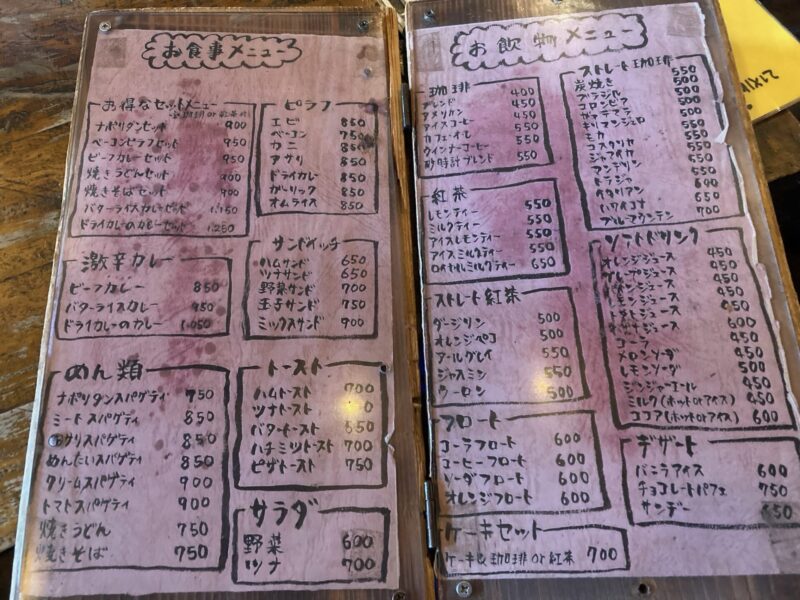 お食事メニュー
お得なセットメニュー
ナポリタンセット 900
ベーコンピラフセット 950
ビーフカレーセット 950
焼きうどんセット 900
焼きそばセット 900
バターライスカレーセット 1,150
ドライカレーのカレーセット 1,250
激辛カレー
ビーフカレー 850
バターライスカレー 950
ドライカレーのカレー 1,050
めん類
ナポリタンスパゲティ 750
ミートスパゲティ 850
アサリスパゲティ 850
めんたいスパゲティ 850
クリームスパゲティ 900
トマトスパゲティ 900
焼きうどん 750
焼きそば 750
ピラフ
エビ 850
ベーコン 750
カニ 850
アサリ 850
ドライカレー 850
ガーリック 850
オムライス 850
サンドイッチ
ハムサンド 650
ツナサンド 650
野菜サンド 700
玉子サンド 750
ミックスサンド 900
トースト
ハムトースト 700
ツナトースト
バタートースト 550
ハチミツトースト 700
ピザトースト 750
サラダ
野菜 600
ツナ 700
お飲物メニュー
珈琲
ブレンド 400
アメリカン 450
アイスコーヒー 450
カフェ・オ・レ 550
ウインナーコーヒー 550
砂時計ブレンド 550
紅茶
レモンティー 550
ミルクティー 550
アイスレモンティー 550
アイスミルクティー 550
ロイヤルミルクティー 650
ストレート紅茶
ダージリン 500
オレンジペコ 500
アールグレイ 550
ジャスミン 550
ウーロン 500
フロート
コーラフロート 600
コーヒーフロート 600
ソーダフロート 600
オレンジフロート 600
ケーキセット
ケーキ& 珈琲 or 紅茶 700
ストレート珈琲
炭焼き 550
ブラジル 500
コロンビア 500
ガテマラ 500
キリマンジェロ 500
モカ 500
コスタリカ 550
ジャマイカ 550
マンデリン 550
トラジャ 550
イタリアン 600
ハワイコナ 650
ブルーマウンテン 700
ソフトドリンク
オレンジジュース 450
グレープジュース 450
ジュース 450
レモンジュース 450
トマトジュース 450
バナナジュース 600
コーラ 450
メロンソーダ 450
レモンソーダ 500
ジンジャーエール 450
ミルク(ホットorアイス) 450
ココア(ホットorアイス) 600
デザート
バニラアイス 600
チョコレートパフェ 750
サンデー 650